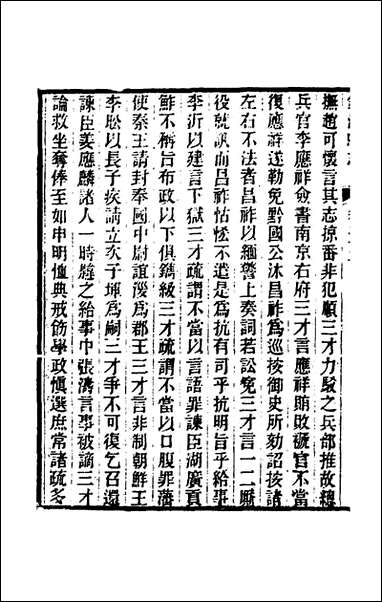 撫趙可懷言其志掠番非犯順三才力駁之兵部推故總
兵官李應祥僉書南京右府三才言應祥賄敗礮官不當
復應祥遂勒免黔國公沐昌祚為巡按御史所劾詔按諸
左右不法者昌祚以緬警上奏詞若訟寃三才言一二厮
役就訊而昌祚怙惏不遑是為抗有司乎抗明旨乎給事
李沂以建言下獄三才疏謂不當以言語罪諫臣湖廣貢
鮓不稱旨布政以下俱鐫級三才疏謂不當以口腹罪藩
使秦王請封奉國中尉誼漫為郡王三才言非制朝鮮王
李昖以長子疾請立次子琿為嗣三才爭不可復乞召還
諫臣姜應麟諸人一時韙之給事中張濤言事被謫三才
論救坐奪俸至如申明恤典戒飭學政愼選庶常諸疏多